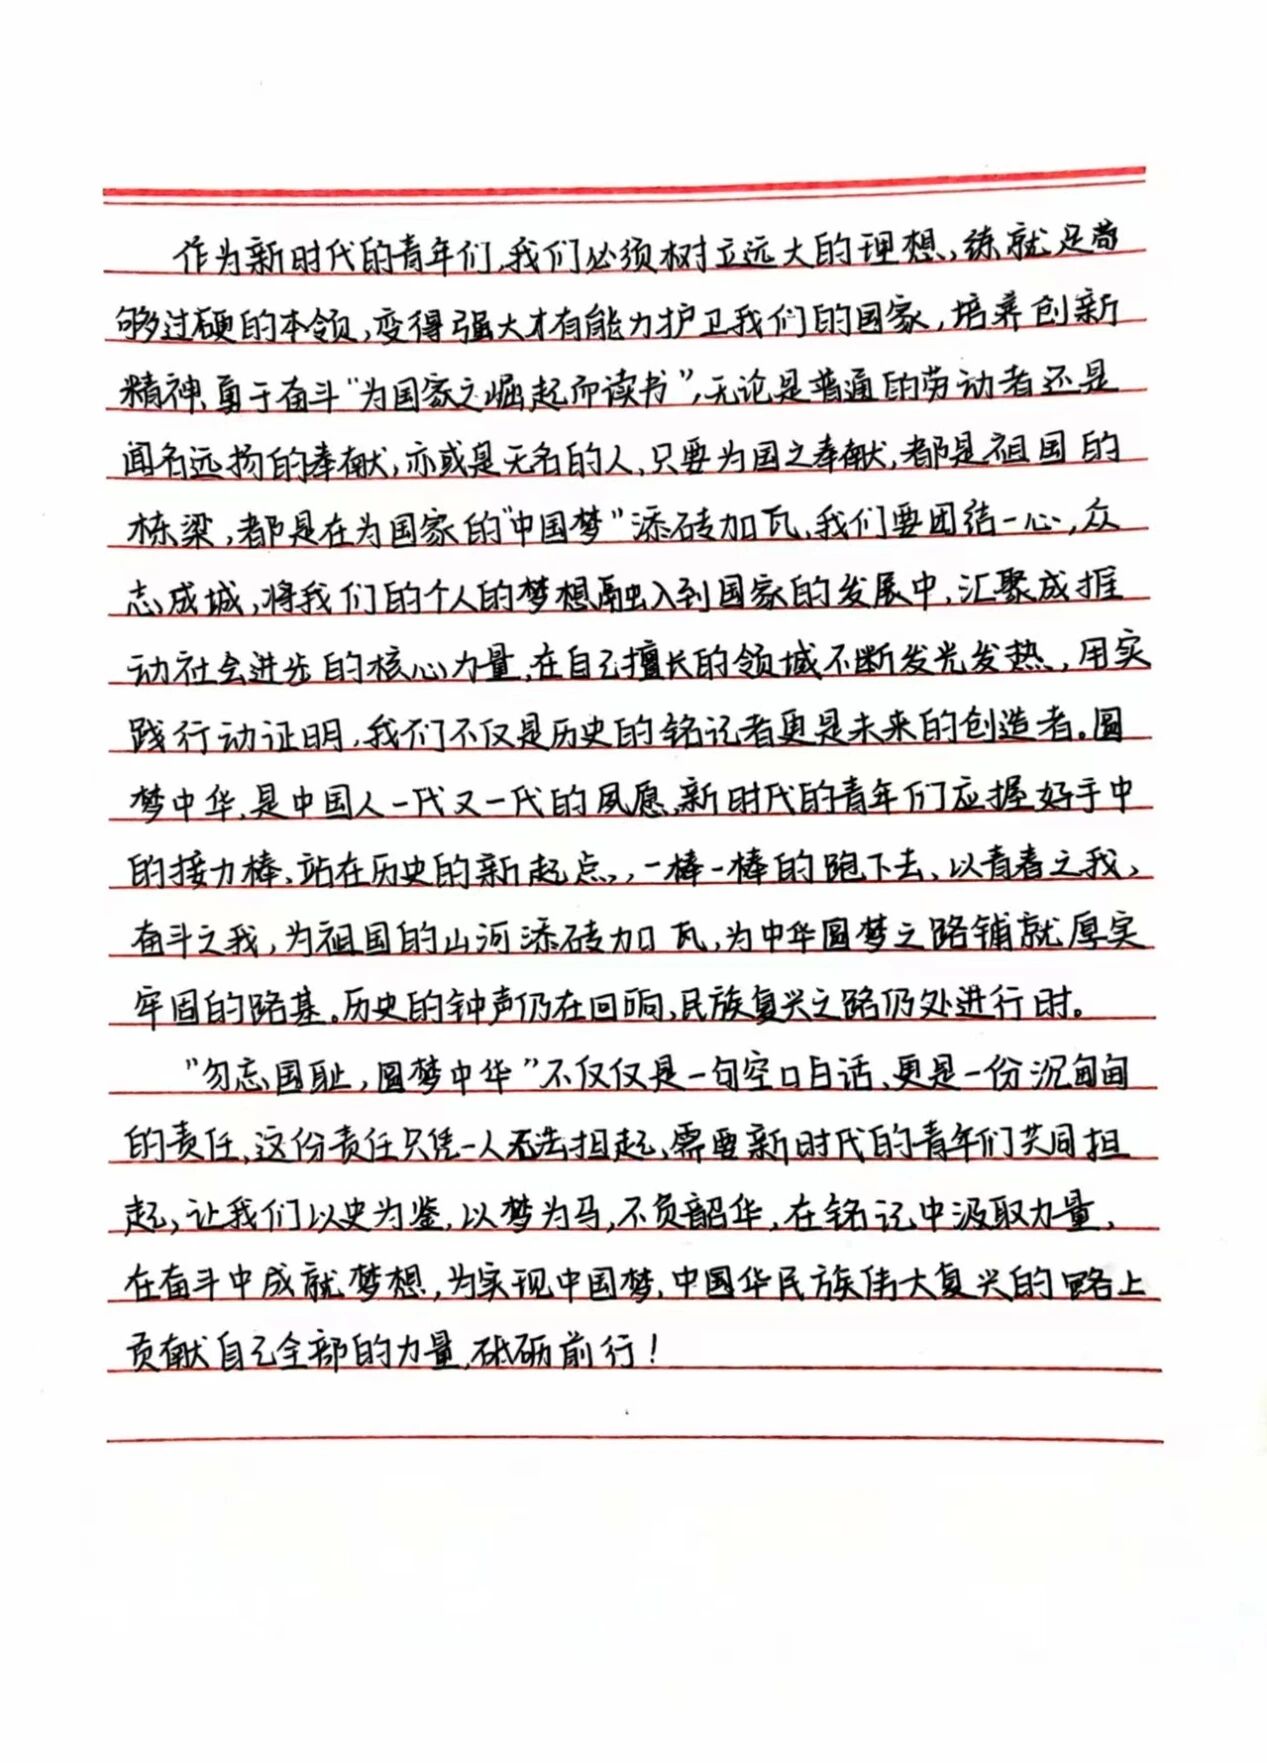 作为新时代的青年们,我们必须树立远大的理想,练就足
够过硬的本领,变得强大才有能力护卫我们的国家,培养创新
精神、勇于奋斗“为国家之崛起而读书”,无论是普通的劳动者还是
闻名远扬的奉献,亦或是无名的人,只要为国之奉献,都是祖国的
栋梁,都是在为国家的“中国梦”添砖加瓦,我们要团结一心,众
志成城,将我们的个人的梦想融入到国家的发展中,汇聚成推
动社会进步的核心力量,在自己擅长的领域不断发光发热,用实
践行动证明,我们不仅是历史的铭记者更是未来的创造者。圆
梦中华,是中国人一代又一代的夙愿,新时代的青年们应握好手中
的接力棒、站在历史的新起点,,一棒一棒的跑下去、以青春之我,
奋斗之我,为祖国的山河添砖加瓦,为中华圆梦之路铺就厚实
牢固的路基。历史的钟声仍在回响,民族复兴之路仍处进行时。
“勿忘国耻,圆梦中华”不仅仅是一句空口白话、更是一份沉甸甸
的责任,这份责任只凭一人无法担起,需要新时代的青年们共同担
起,让我们以史为鉴,以梦为马,不负韶华,在铭记中汲取力量,
在奋斗中成就梦想,为实现中国梦,中国华民族伟大复兴的路上
贡献自己全部的力量,砥砺前行!